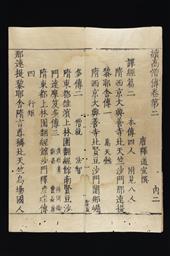 續高僧傳卷第二
唐釋道宣撰
譯經篇二 本傳四人 附見八人
隋西京大興善寺北天竺沙門那連
耶舍傳一 萬天懿
隋西京大興善寺北賢豆沙門闍那崛
多傳二 僧就 法智
隋東都雒濱上林園翻經館南賢豆沙
門達摩笈多傳三
隋東都上林園翻經館沙門釋彥琮傳
四 行矩
那連提黎耶舍隋言尊稱北天竺烏場國人